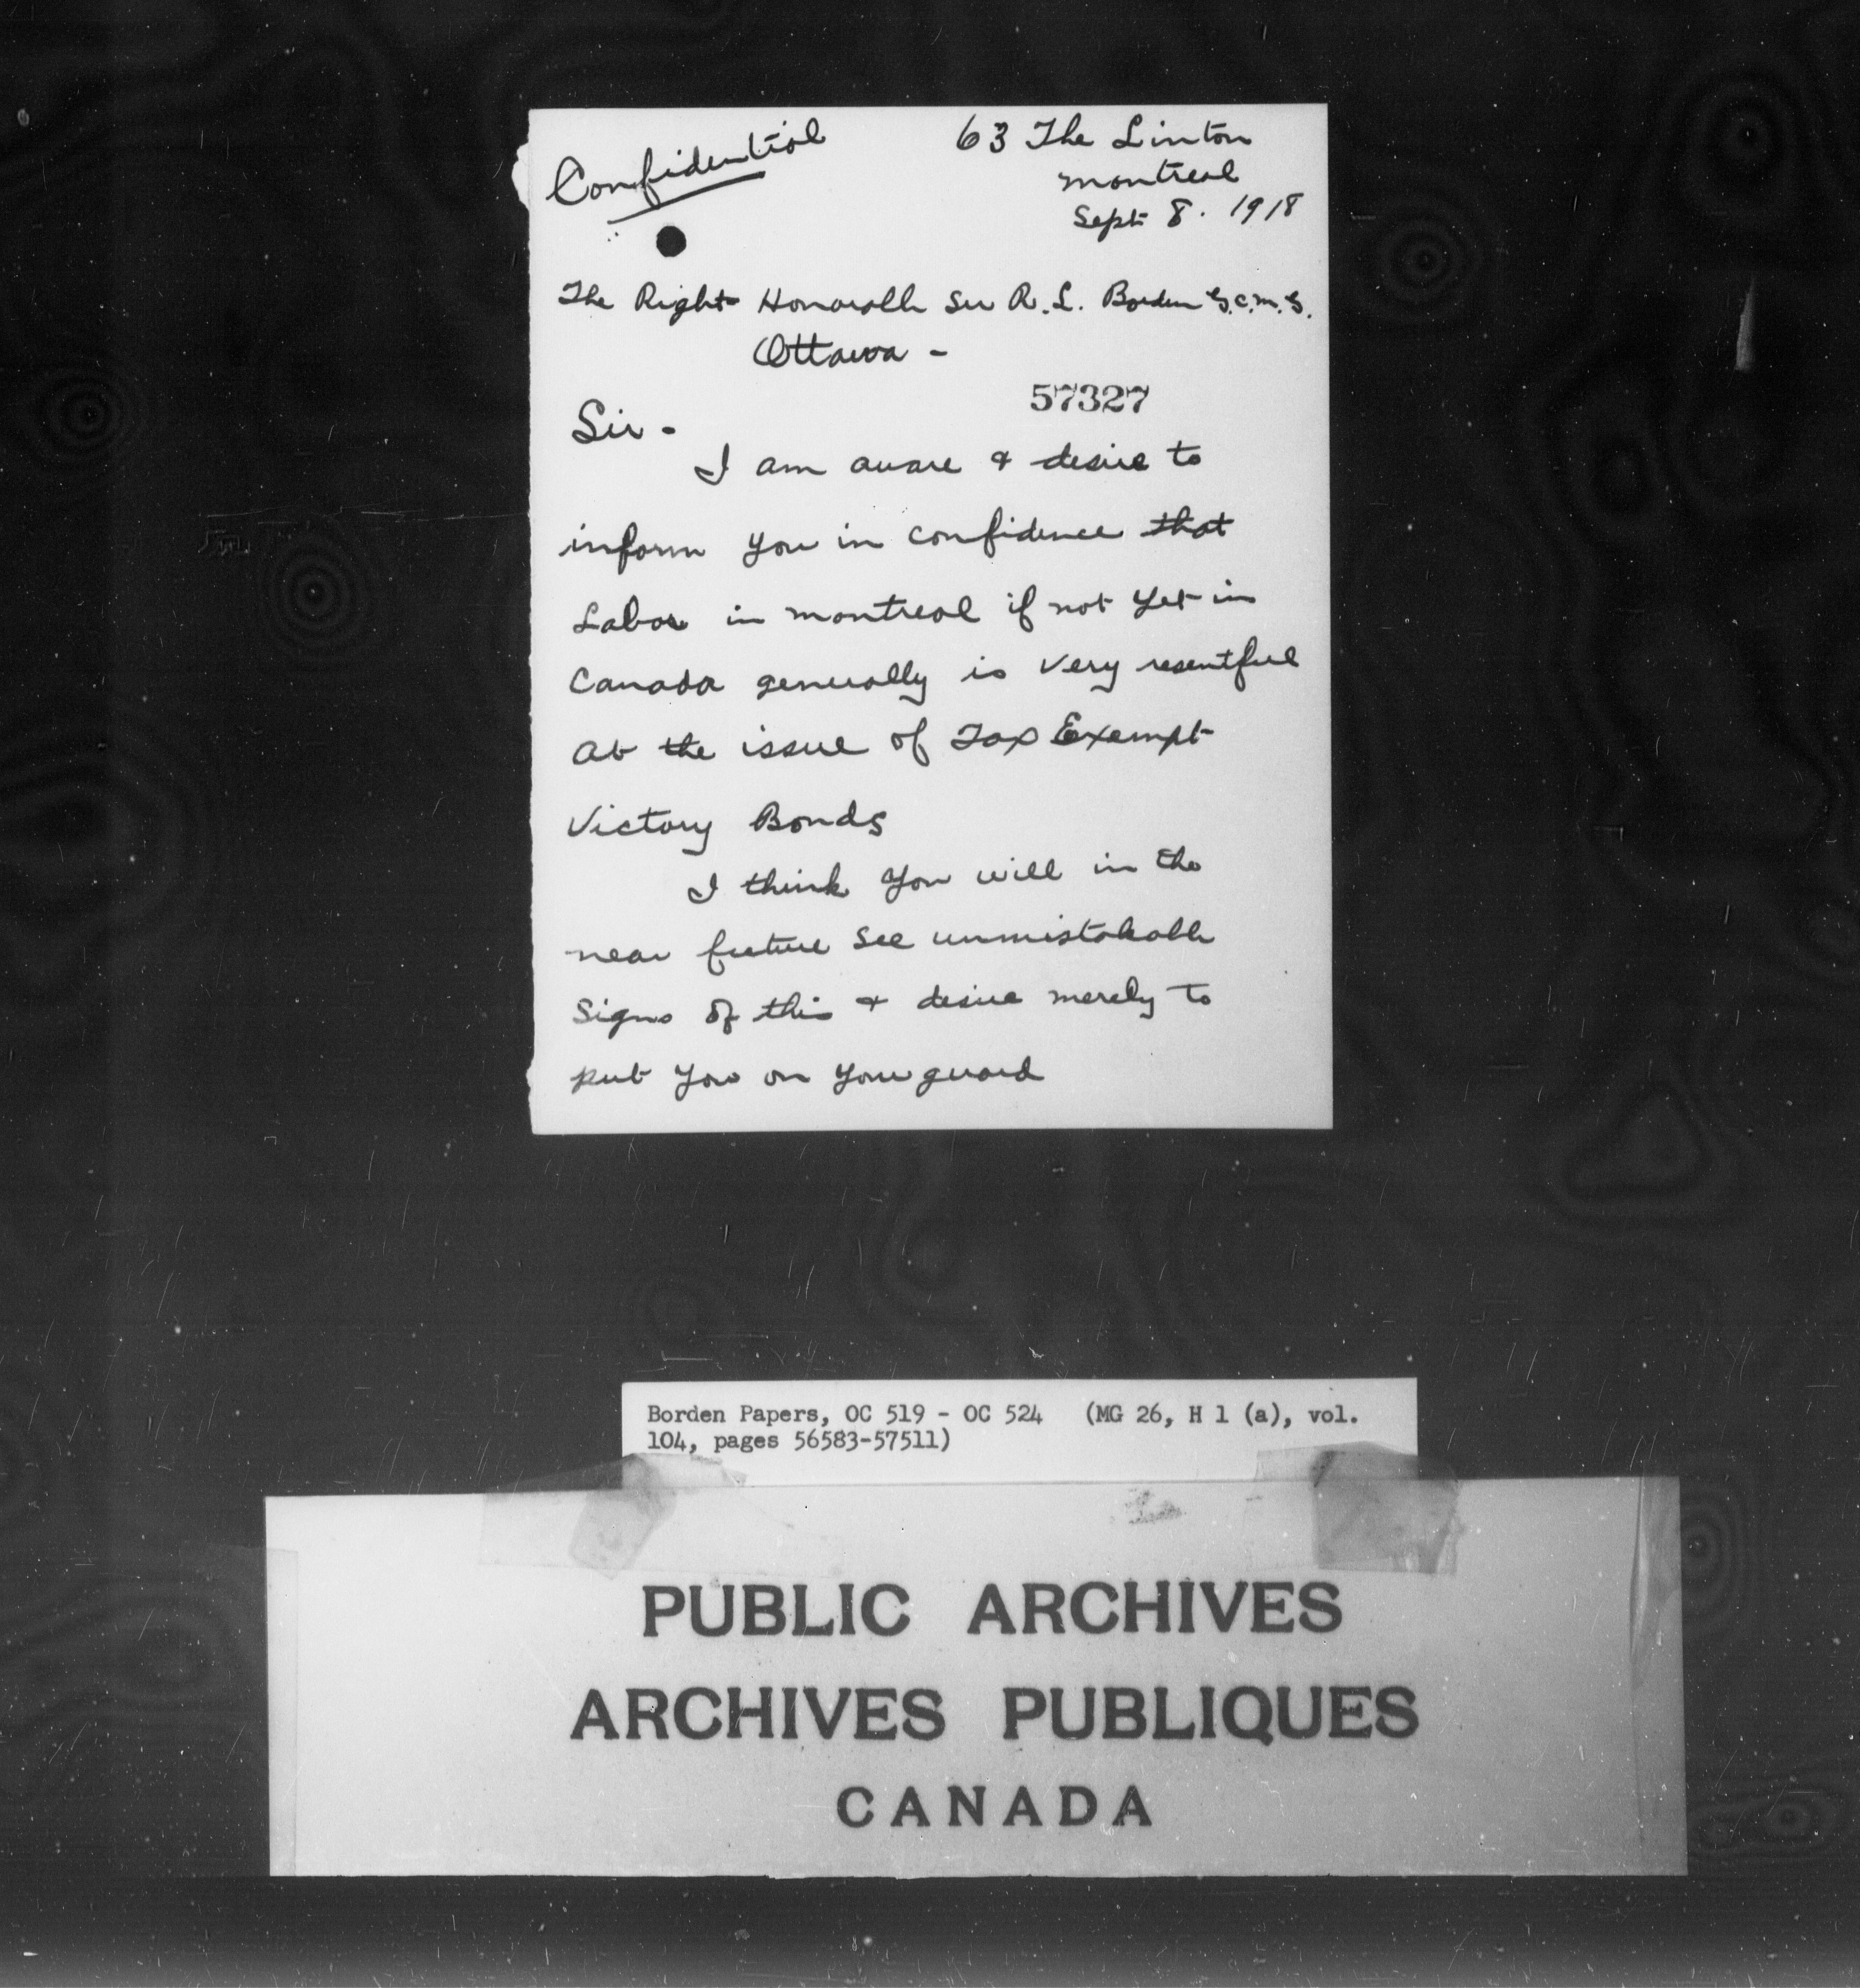 Confidential
63 The Linton
Montreal
Sept 8. 1918
The Right Honorable Sir R. L. Borden G.C.M.G.
Ottawa -
57327
Sir -
I am aware & desire to
inform you in confidence that
Labor in Montreal if not yet in
Canada generally is very resentful
at the issue of Tax Exempt
Victory Bonds
I think you will in the
near future see unmistakable
signs of this & desire merely to
put you on your guard
Borden Papers, OC 519 - OC 524 (MG 26, H 1 (a), vol.
104, pages 56583-57511)
PUBLIC ARCHIVES
ARCHIVES PUBLIQUES
CANADA